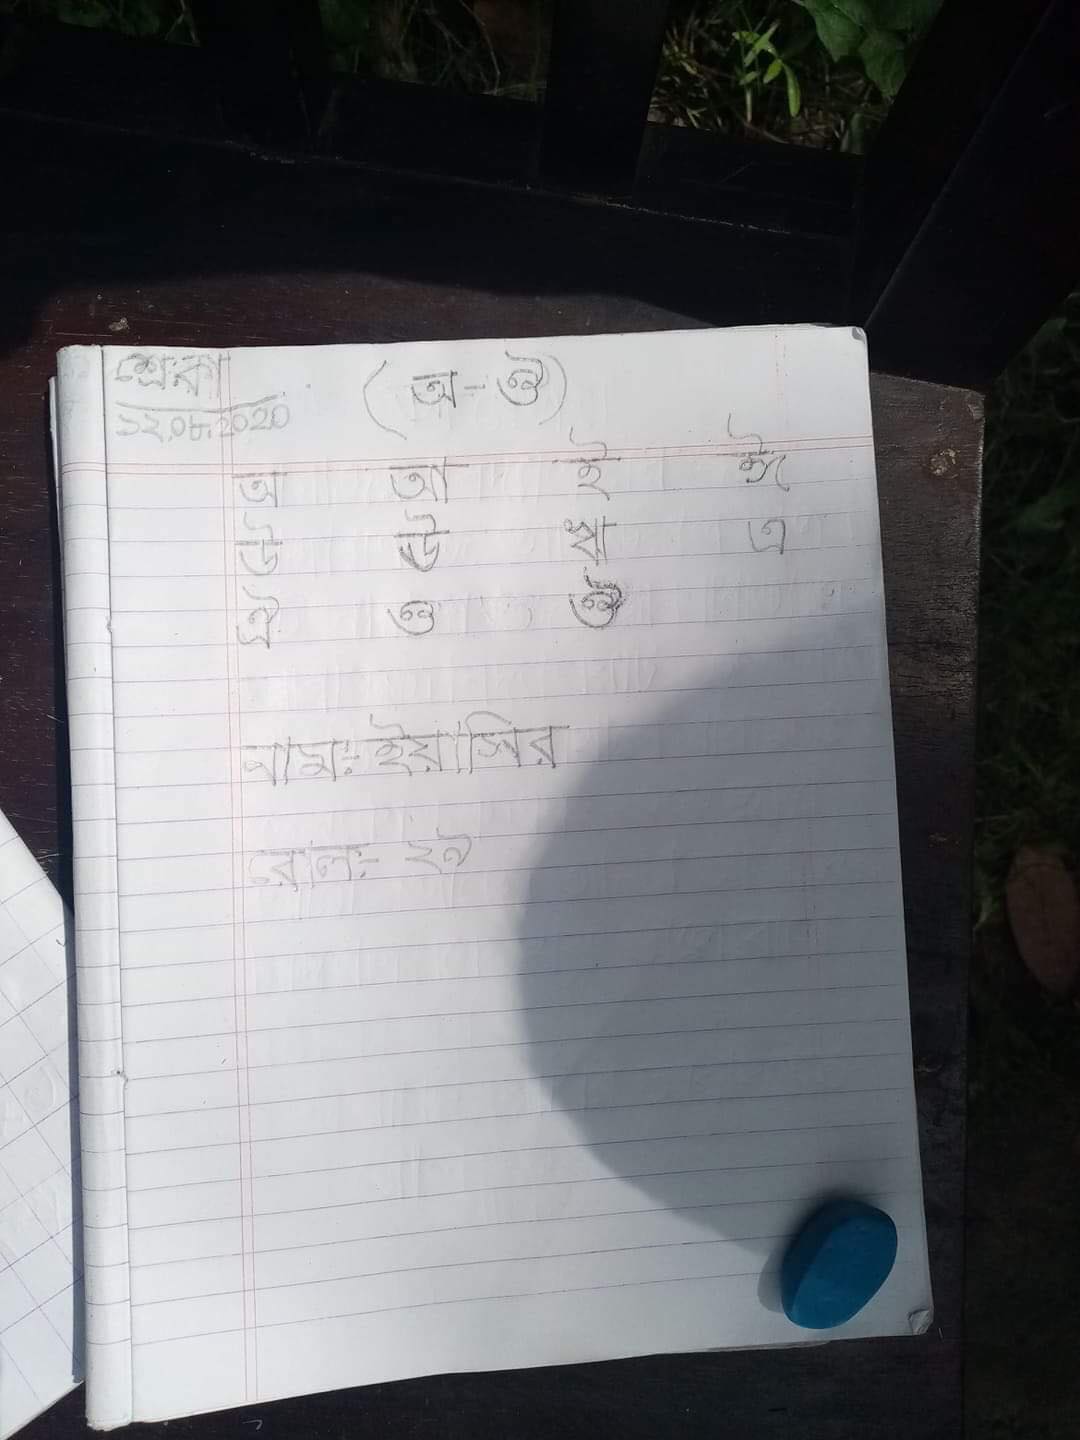 শ্রেঃকা
১২.০৮.২০২০
(অ-ঔ)
অ আ ই ঈ
উ ঊ ঋ এ
ঐ ও ঔ
নামঃ ইয়াসির
রোলঃ- ২১